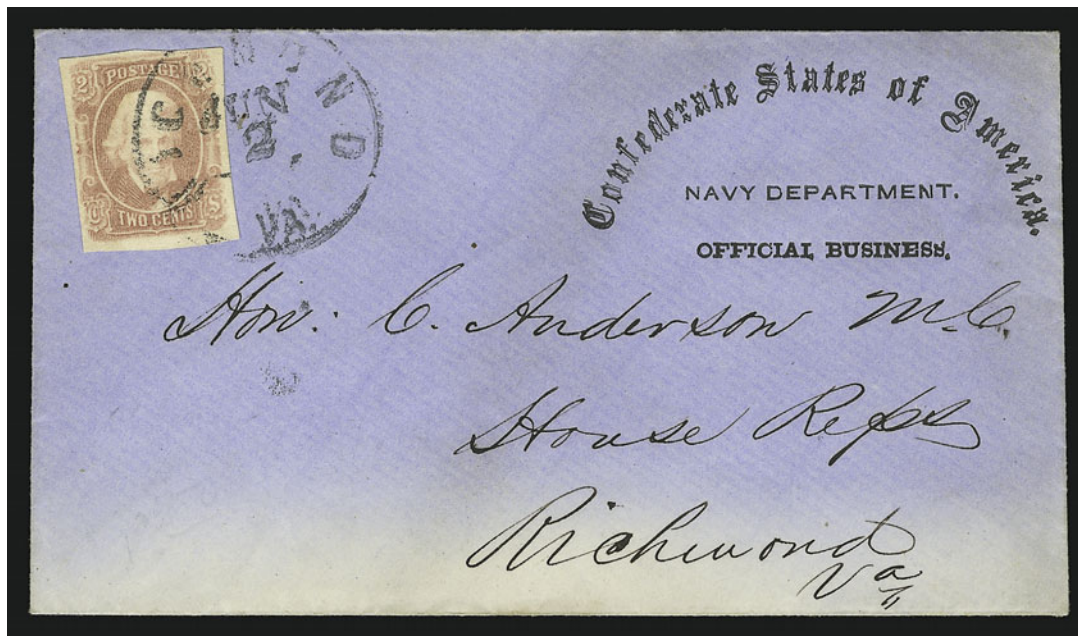 2 POSTAGE 2
TWO CENTS
RICHMOND
JUN
2
VA.
Confederate States of America.
NAVY DEPARTMENT.
OFFICIAL BUSINESS.
Hon. C. Anderson M.C.
House Reps
Richmond
Va